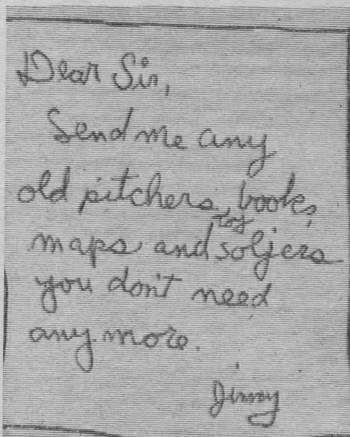 Dear Sir,
Send me any
old pitchers, books,
maps and toy soljers
you don't need
any more.
Jimmy